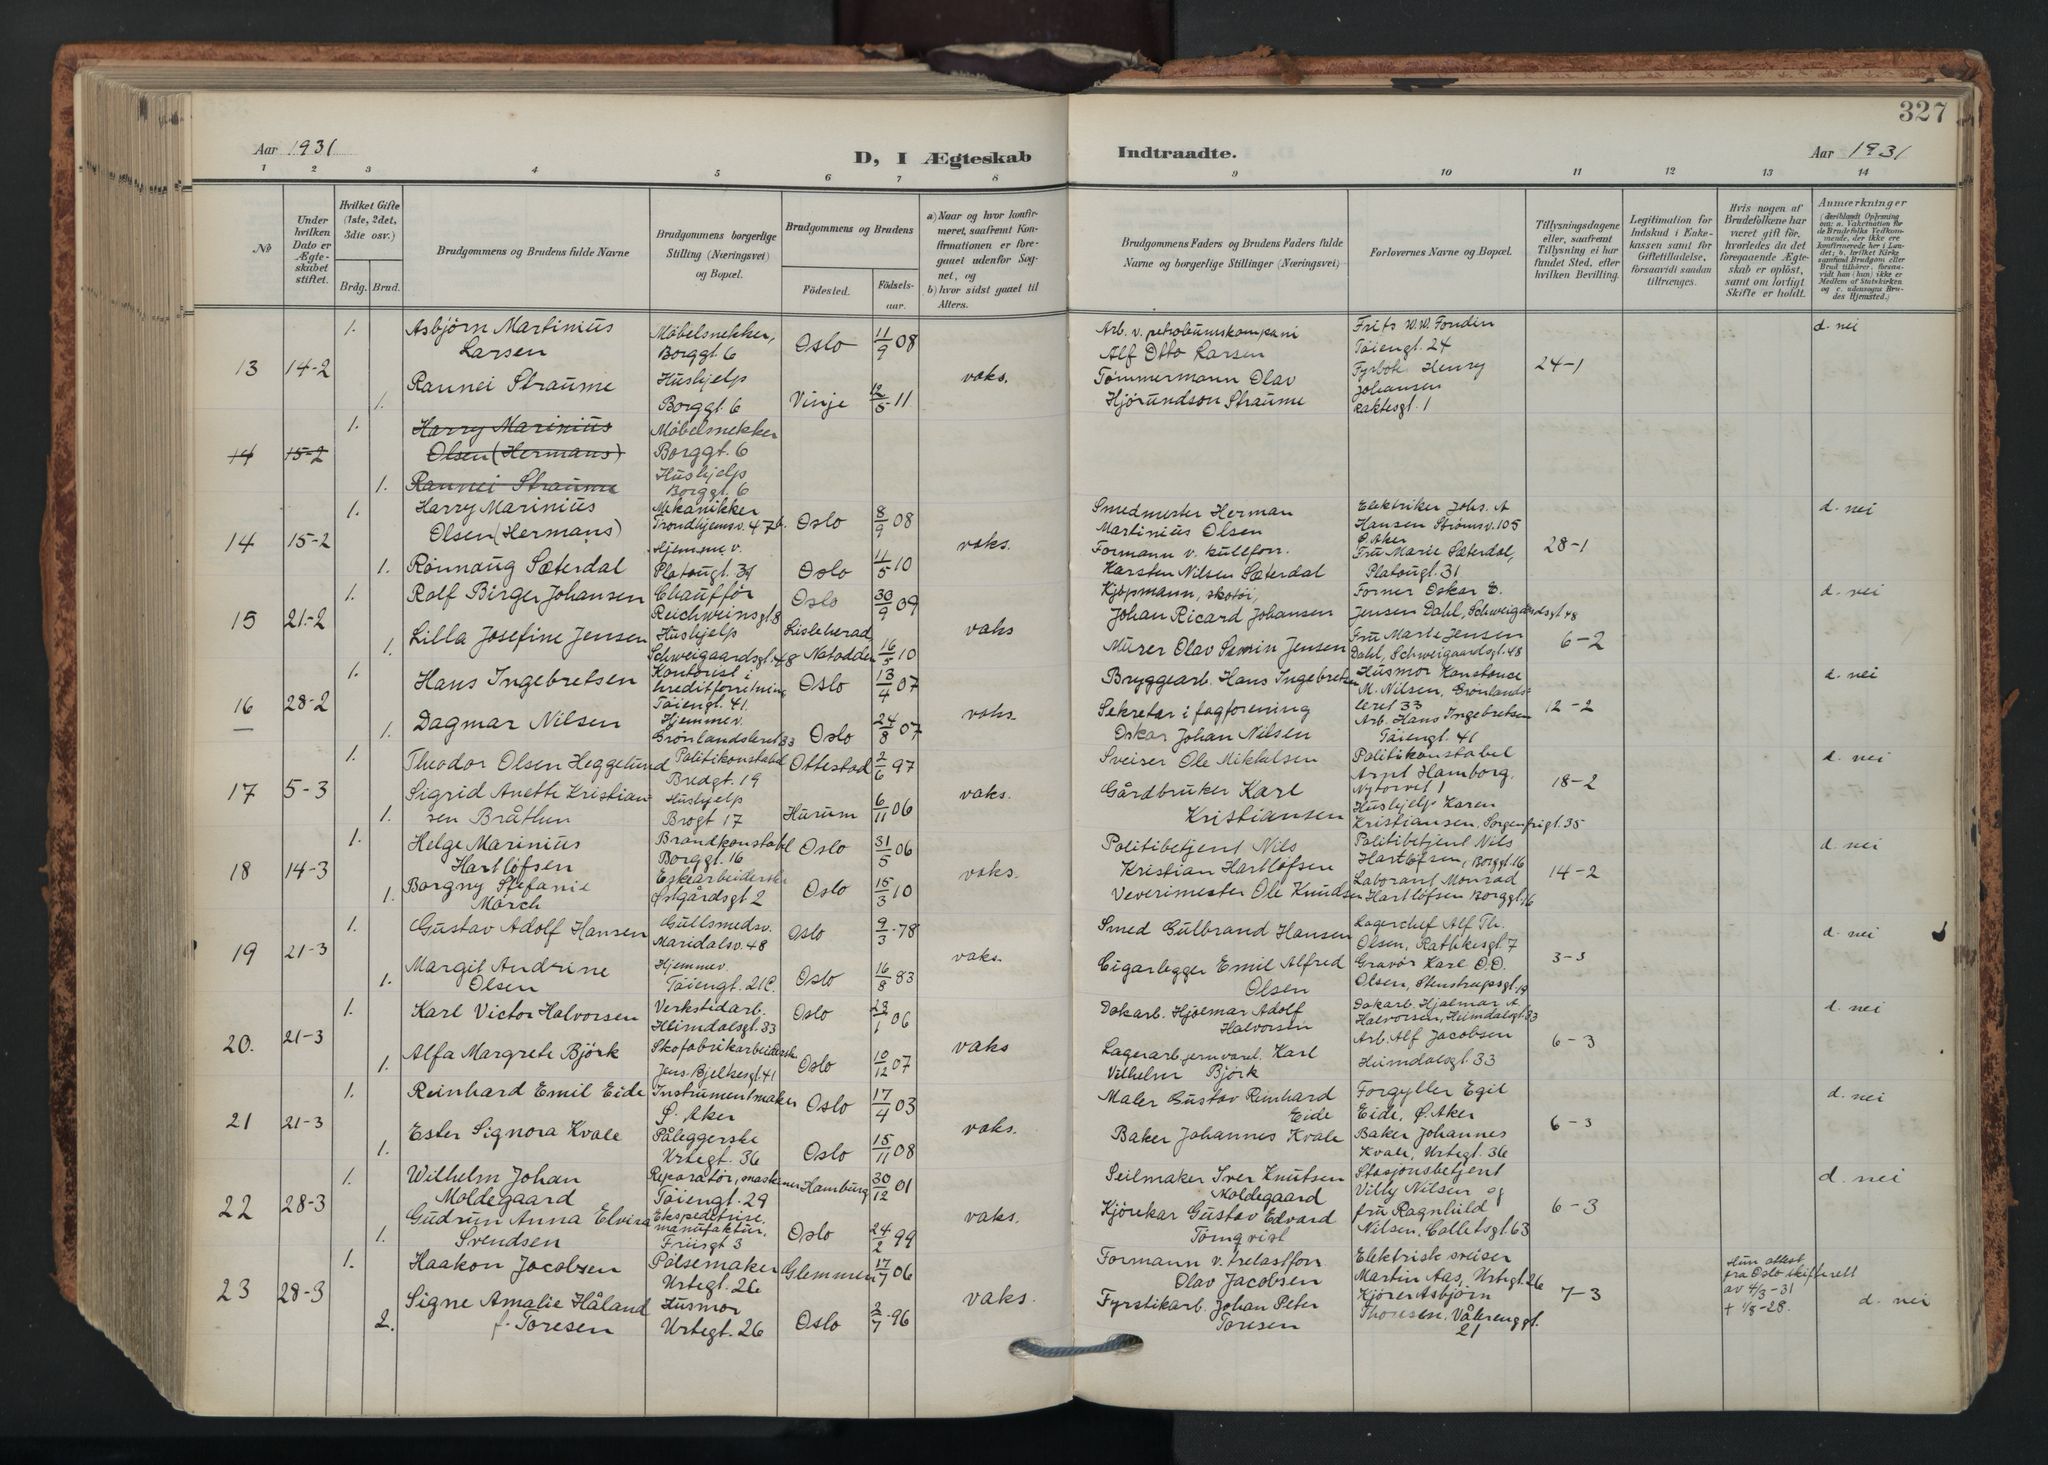 327
Aar 1931
D, I Ægteskab
Indtraadte.
Aar 1931
1 2 3 4 5 6 7 8 9 10 11 12 13 14
No
Under hvilken Dato er Ægteskabet stiftet.
Hvilket Gifte (1ste, 2det, 3die osv.)
Brdg. Brud.
Brudgommens og Brudens fulde Navne
Brudgommens borgerlige Stilling (Næringsvei) og Bopæl.
Brudgommens og Brudens
Fødested.
Fødselsaar.
a) Naar og hvor konfirmeret, saafremt Konfirmationen er foregaaet udenfor Sognet, og
b) hvor sidst gaaet til Alters.
Brudgommens Faders og Brudens Faders fulde Navne og borgerlige Stillinger (Næringsvei)
Forlovernes Navne og Bopæl.
Tillysningsdagene eller, saafremt Tillysning ei har fundet Sted, efter hvilken Bevilling.
Legitimation for Indskud i Enkekassen samt for Giftetilladelse, forsaavidt saadan tiltrænges.
Hvis nogen af Brudefolkene har været gift før, hvorledes da det foregaaende Ægteskab er opløst, samt om lovligt Skifte er holdt.
Anmærkninger
13 14-2
1. Asbjörn Martinius Larsen
Møbelsnekker, Borggt. 6
Oslo 11/9 08
1. Rannei Straume
Hushjelp Borggt. 6
Vinje 12/5 11
vaks.
Arb. v. petroleumskompani Alf Otto Larsen
Tømmermann Olav Hjörundson Straume
Töiengt. 24
Fyrbøt. Henry Johansen
24-1
d. nei
14 15-2
1. Harry Marinius Olsen (Hermans)
Møbelsnekker Borggt. 6
1. Rannei Straume
Hushjelp Borggt. 6
14 15-2
1. Harry Marinius Olsen (Hermans)
Mekanikker Trondhjemsv. 47b.
Oslo 8/9 08
1. Rönnaug Sæterdal
Hjemme v. Platougt. 31
Oslo 11/5 10
vaks.
Smedmester Herman Martinius Olsen
Formann v. kullforr. Karsten Nilsen Sæterdal
Elektriker Johs. A Hansen Strömsv. 105 Ø. Aker
Fru Marie Sæterdal, Platougt. 31
28-1
d. nei
15 21-2
1. Rolf Birger Johansen
Chauffør Reichweinsgt. 8
Oslo 30/9 09
1. Lilla Josefine Jensen
Hushjelp Schweigaardsgt. 48
Lisleherad Notodden 16/5 10
vaks
Kjøpmann, skotøi, Johan Ricard Johansen
Murer Olav Severin Jensen
Former Oskar E. Jensen Dahl, Schweigaardsgt. 48
Fru Marie Jensen Dahl, Schweigaardsgt. 48
6-2
d. nei
16 28-2
1. Hans Ingebretsen
Kontorist i kreditforretning Töiengt. 41.
Oslo 13/4 07
1. Dagmar Nilsen
Hjemmev. Grönlandsleret 33
Oslo 24/8 07
vaks.
Bryggearb. Hans Ingebretsen
Sekretær i fagforening Oskar Johan Nilsen
Husmor Konstance M. Nilsen, Grønlandsleret 33
Arb. Hans Ingebretsen Töiengt. 41
12-2
d. nei
17 5-3
1. Theodor Olsen Heggelund
Politikonstabel Bredgt. 19
Ottestad 2/6 97
1. Sigrid Anette Kristiansen Bråthen
Hushjelp Brogt 17
Hurum 6/11 06
vaks.
Sveiser Ole Mikkelsen
Gårdbruker Karl Kristiansen
Politikonstabel Arnt Hamborg, Nytorvet 1
Hushjelp Karen Kristiansen, Sorgenfrigt. 35
18-2
d. nei
18 14-3
1. Helge Marinius Hartlöfsen
Brandkonstabel Borggt. 16
Oslo 31/5 06
1. Borgny Stefanie March
Eskearbeiderske Østgårdsgt 2
Oslo 15/3 10
vaks.
Politibetjent Nils Kristian Hartlöfsen
Veverimester Ole Knudsen
Politibetjent Nils Hartlöfsen, Borggt. 16
Laborant Monrad Hartlöfsen Borggt. 16
14-2
d. nei
19 21-3
1. Gustav Adolf Hansen
Gullsmedsv. Maridalsv. 48
Oslo 9/3 78
1. Margit Andrine Olsen
Hjemmev. Töiengt. 21C.
Oslo 16/8 83
vaks.
Smed Gulbrand Hansen
Cigarlegger Emil Alfred Olsen
Lagerchef Alf Th. Olsen, Rathkesgt. 7
Gravör Karl O.O. Olsen, Stenstrupsgt. 19
3-3
d. nei
20. 21-3
1. Karl Victor Halvorsen
Verkstidarb. Heimdalsgt. 33
Oslo 1 06
1. Alfa Margrete Björk
Skofabrikarbeiderske Jens Bjelkesgt. 41
Oslo 10/12 07
vaks
Dokarb. Hjalmar Adolf Halvorsen
Lagerarb. jernvarel. Karl Vilhelm Björk
Dokarb. Hjalmar A. Halvorsen, Heimdalsgt. 33
Arb. Alf Jacobsen Heimdalsgt. 33
6-3
d. nei
21 21-3
1. Reinhard Emil Eide
Instrumentmaker Ø. Aker
Oslo 17/4 03
1. Ester Signora Kvale
Påleggerske Urtegt. 36
Oslo 15/11 08
vaks.
Maler Gustav Reinhard Eide
Baker Johannes Kvale
Forgyller Egil Eide, Ø. Aker
Baker Johannes Kvale, Urtegt. 36
6-3
d. nei
22 28-3
1. Wilhelm Johan Moldegaard
Reparatør, maskiner Töiengt. 29
Hamburg 30/12 01
1. Gudrun Anna Elvira Svendsen
Ekspeditrise, manufaktur, Friisgt 3
Oslo 24/2 99
vaks.
Seilmaker Iver Knutsen Moldegaard
Kjörekar Gustav Edvard Törnqvist
Stasjonsbetjent Villy Nilsen og fru Ragnhild Nilsen, Colletsgt. 63
6-3
d. nei
23 28-3
1. Haakon Jacobsen
Pölsemaker Urtegt. 26
Glemmen 17/7 06
2. Signe Amalie Håland f. Toresen
Husmor Urtegt. 26
Oslo 2/7 96
vaks.
Formann v. trelastforr. Olav Jacobsen
Fyrstikarb. Johan Peter Toresen
Elektrisk sveiser Martin Aas, Urtegt. 26
Kjører Asbjörn Thoresen, Vålerenggt. 21
7-3
Hun attest fra Oslo skifterett av 4/3-31
d. nei